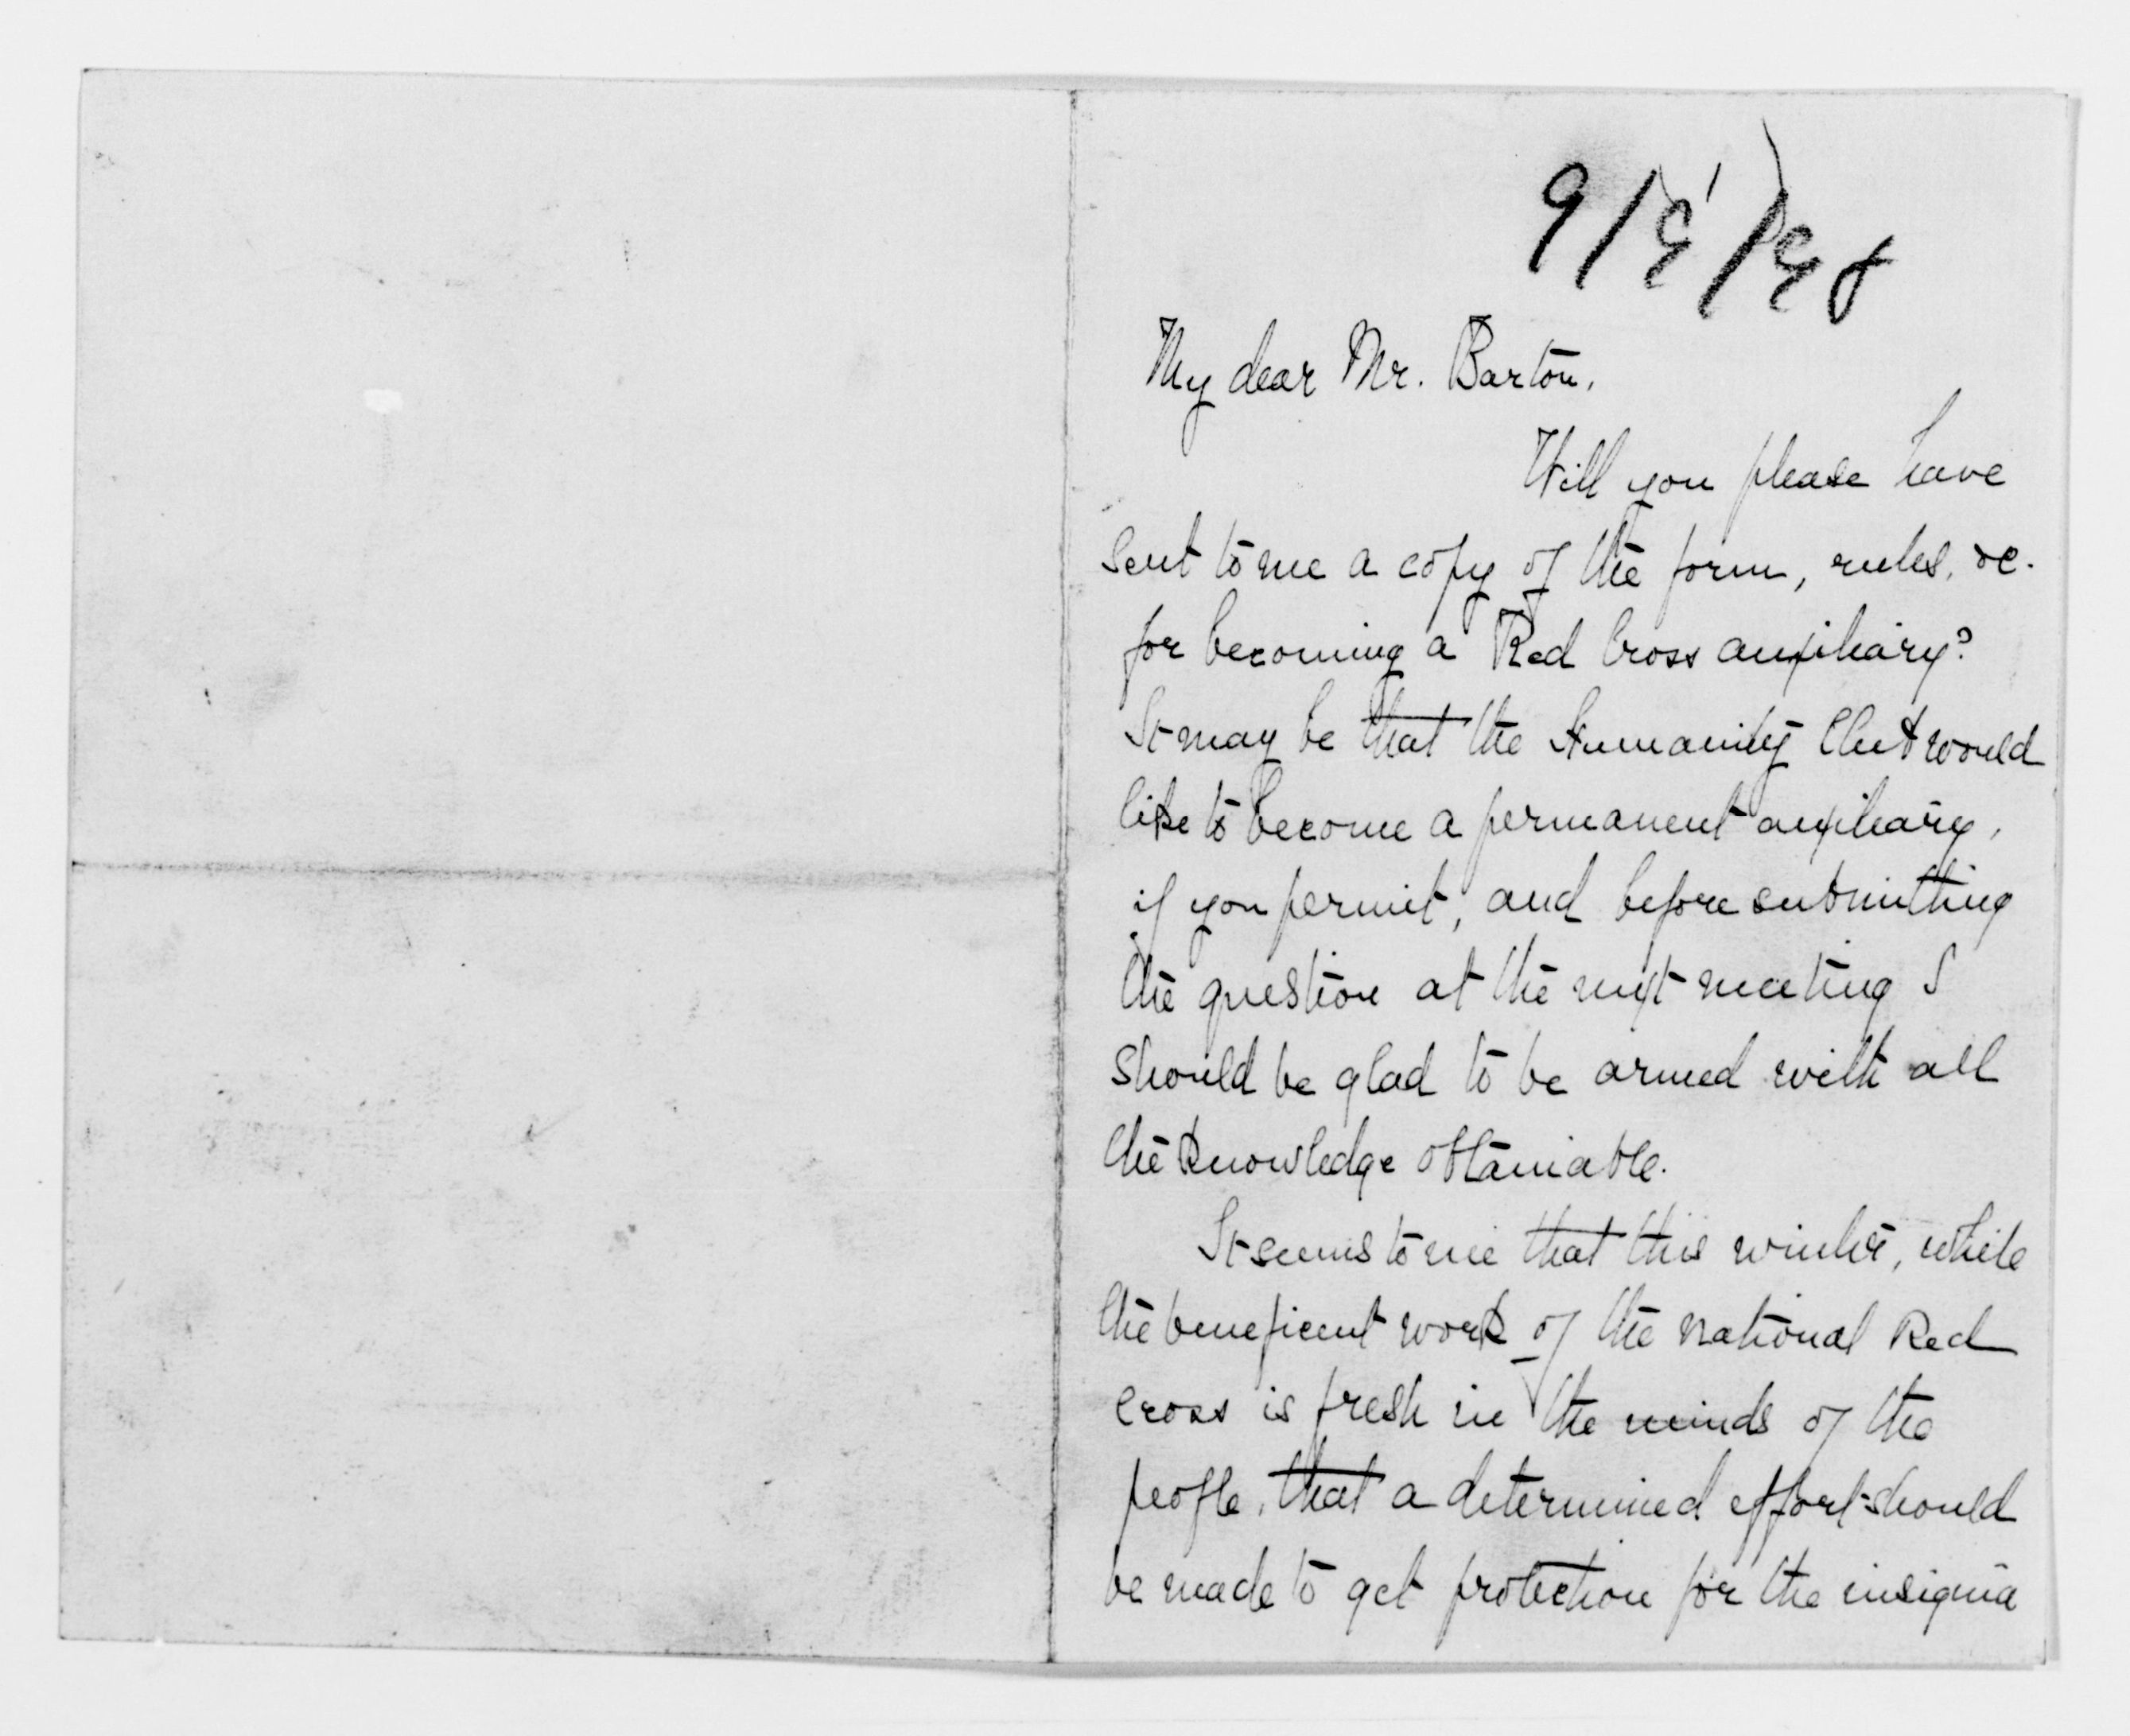 9/9/98
My dear Mr. Barton,
Will you please have
sent to me a copy of the form, rules, &c.
for becoming a Red Cross auxiliary?
It may be that the Humanity Club would
like to become a permanent auxiliary,
if you permit, and before submitting
the question at the next meeting I
should be glad to be armed with all
the knowledge obtainable.
It seems to me that this winter, while
the beneficent work of the national Red
Cross is fresh in the minds of the
people, that a determined effort should
be made to get protection for the insignia